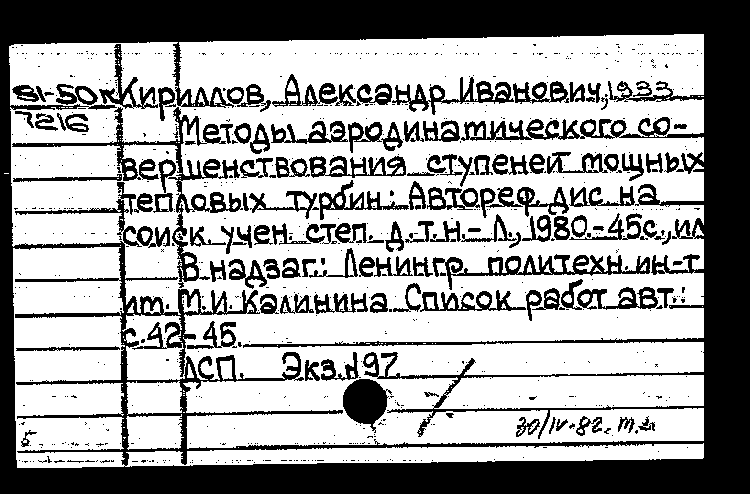 81-50к Кириллов, Александр Иванович, 1933
7216 Методы аэродинамического со-
вершенствования ступеней мощных
тепловых турбин: Автореф. дис. на
соиск. учен. степ. д.т.н.- Л., 1980.-45с., ил
В надзаг.: Ленингр. политехн. ин-т
им. М.И. Калинина Список работ авт.:
с.42-45.
ДСП. Экз.№97
5 30/IV-82.